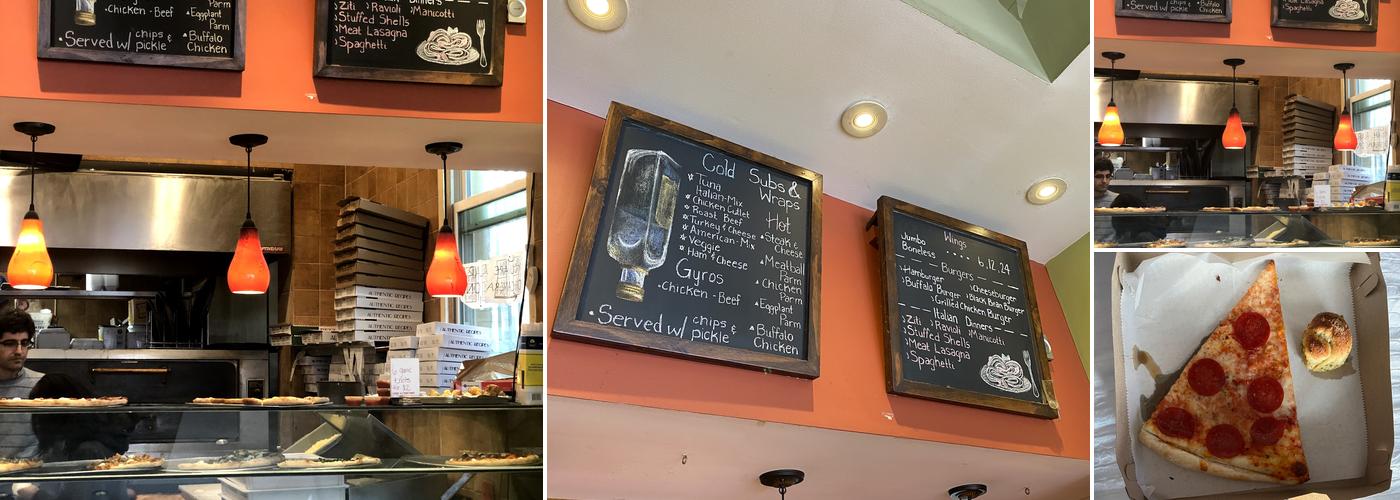 Dinners
Ziti Ravioli Manicotti
Stuffed Shells
Meat Lasagna
Spaghetti
Parm
Chicken - Beef
Eggplant
Parm
Served w/ chips & pickle
Buffalo
Chicken
AUTHENTIC RECIPES
AUTHENTIC RECIPES
AUTHENTIC RECIPES
6 garlic
knots
for $2
Cold Subs &
Wraps
Tuna
Italian-Mix
Chicken Cutlet
Roast Beef
Turkey & Cheese
American-Mix
Veggie
Ham & Cheese
Hot
Steak &
Cheese
Meatball
Parm
Chicken
Parm
Eggplant
Parm
Buffalo
Chicken
Gyros
Chicken - Beef
Served w/ chips &
pickle
Wings
Jumbo
Boneless
6, 12, 24
Burgers
Hamburger
Cheeseburger
Buffalo Burger
Black Bean Burger
Grilled Chicken Burger
Italian Dinners
Ziti Ravioli Manicotti
Stuffed Shells
Meat Lasagna
Spaghetti
Meat Lasagna
Spaghetti